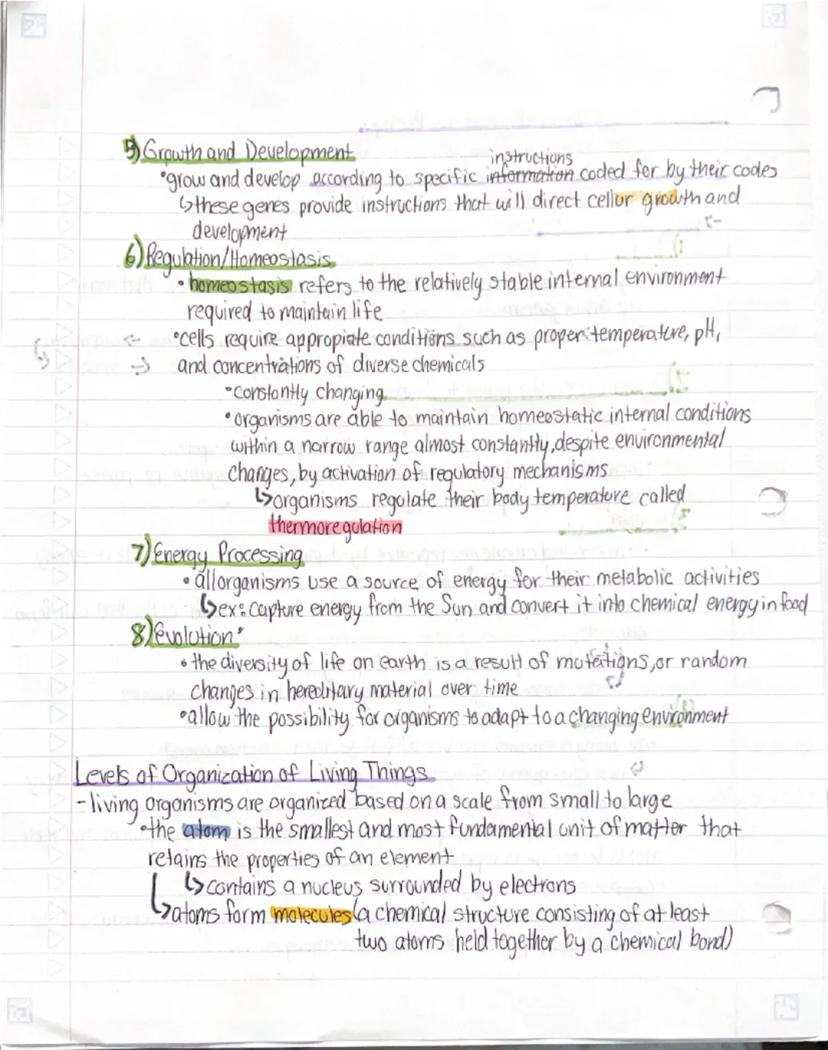 5) Growth and Development
instructions
•grow and develop according to specific information coded for by their codes
↳these genes provide instructions that will direct cellur growth and
development
6) Regulation/Homeostasis
• homeostasis refers to the relatively stable internal environment
required to maintain life
•cells require appropiate conditions such as proper temperature, pH,
and concentrations of diverse chemicals
•constantly changing
•organisms are able to maintain homeostatic internal conditions
within a narrow range almost constantly, despite environmental
changes, by activation of regulatory mechanisms
↳organisms regulate their body temperature called
thermoregulation
7) Energy Processing
• all organisms use a source of energy for their metabolic activities
↳ex: capture energy from the Sun and convert it into chemical energy in food
8) Evolution
• the diversity of life on earth is a result of mutations, or random
changes in hereditary material over time
•allow the possibility for organisms to adapt to a changing environment
Levels of Organization of Living Things
-living organisms are organized based on a scale from small to large
•the atom is the smallest and most fundamental unit of matter that
retains the properties of an element
↳contains a nucleus surrounded by electrons
↳atoms form molecules (a chemical structure consisting of at least
two atoms held together by a chemical bond)